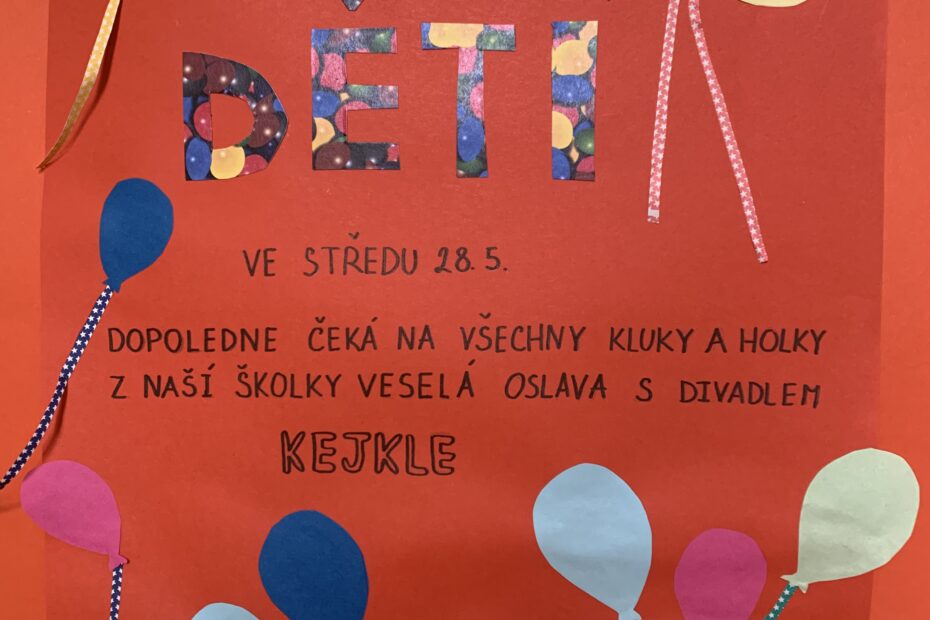 DĚTI
VE STŘEDU 28.5.
DOPOLEDNE ČEKÁ NA VŠECHNY KLUKY A HOLKY
Z NAŠÍ ŠKOLKY VESELÁ OSLAVA S DIVADLEM
KEJKLE